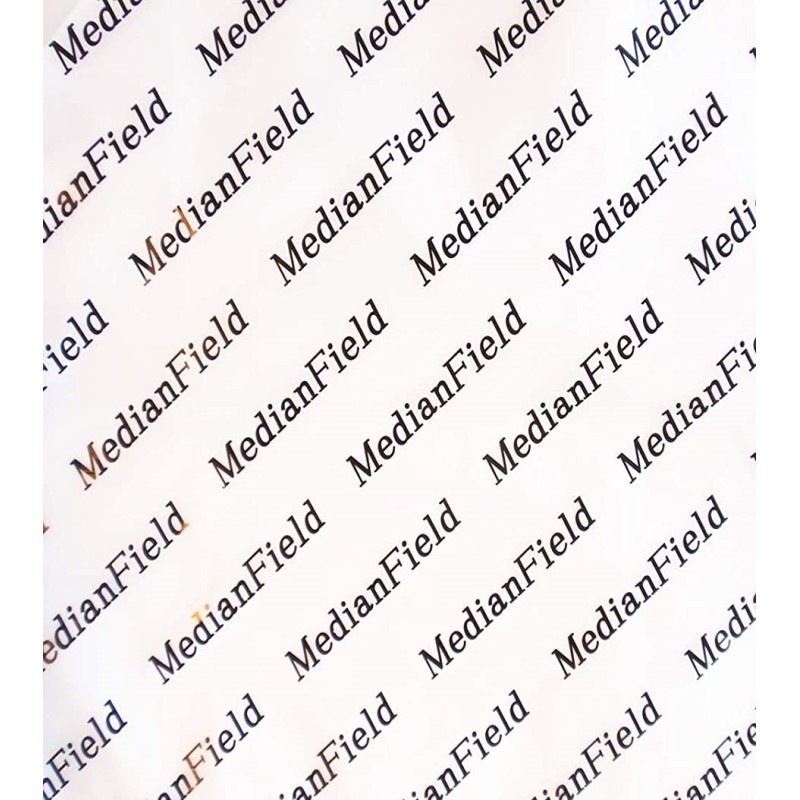 Medi Medi Medi Medi Medi
ianField MedianField MedianField MedianField MedianField Medi
ield MedianField MedianField MedianField MedianField MedianFi
edianField MedianField MedianField MedianField MedianField Medi
nField anField ianField anField ianField anFie